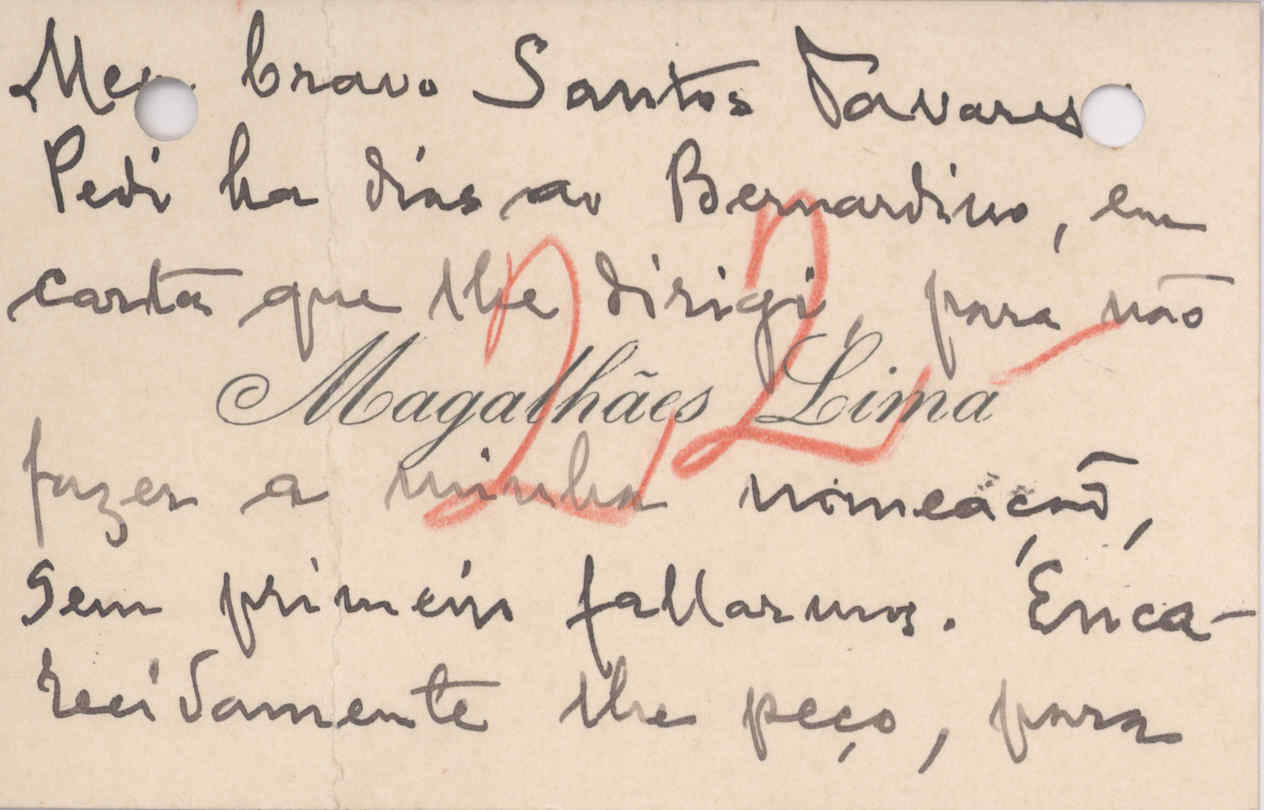 Meu bravo Santos Tavares
Pedi ha dias ao Bernardino, em
carta que lhe dirigi, para não
Magalhães Lima
22
fazer a minha nomeação,
sem primeiro fallarmos. Enca-
recidamente lhe peço, para